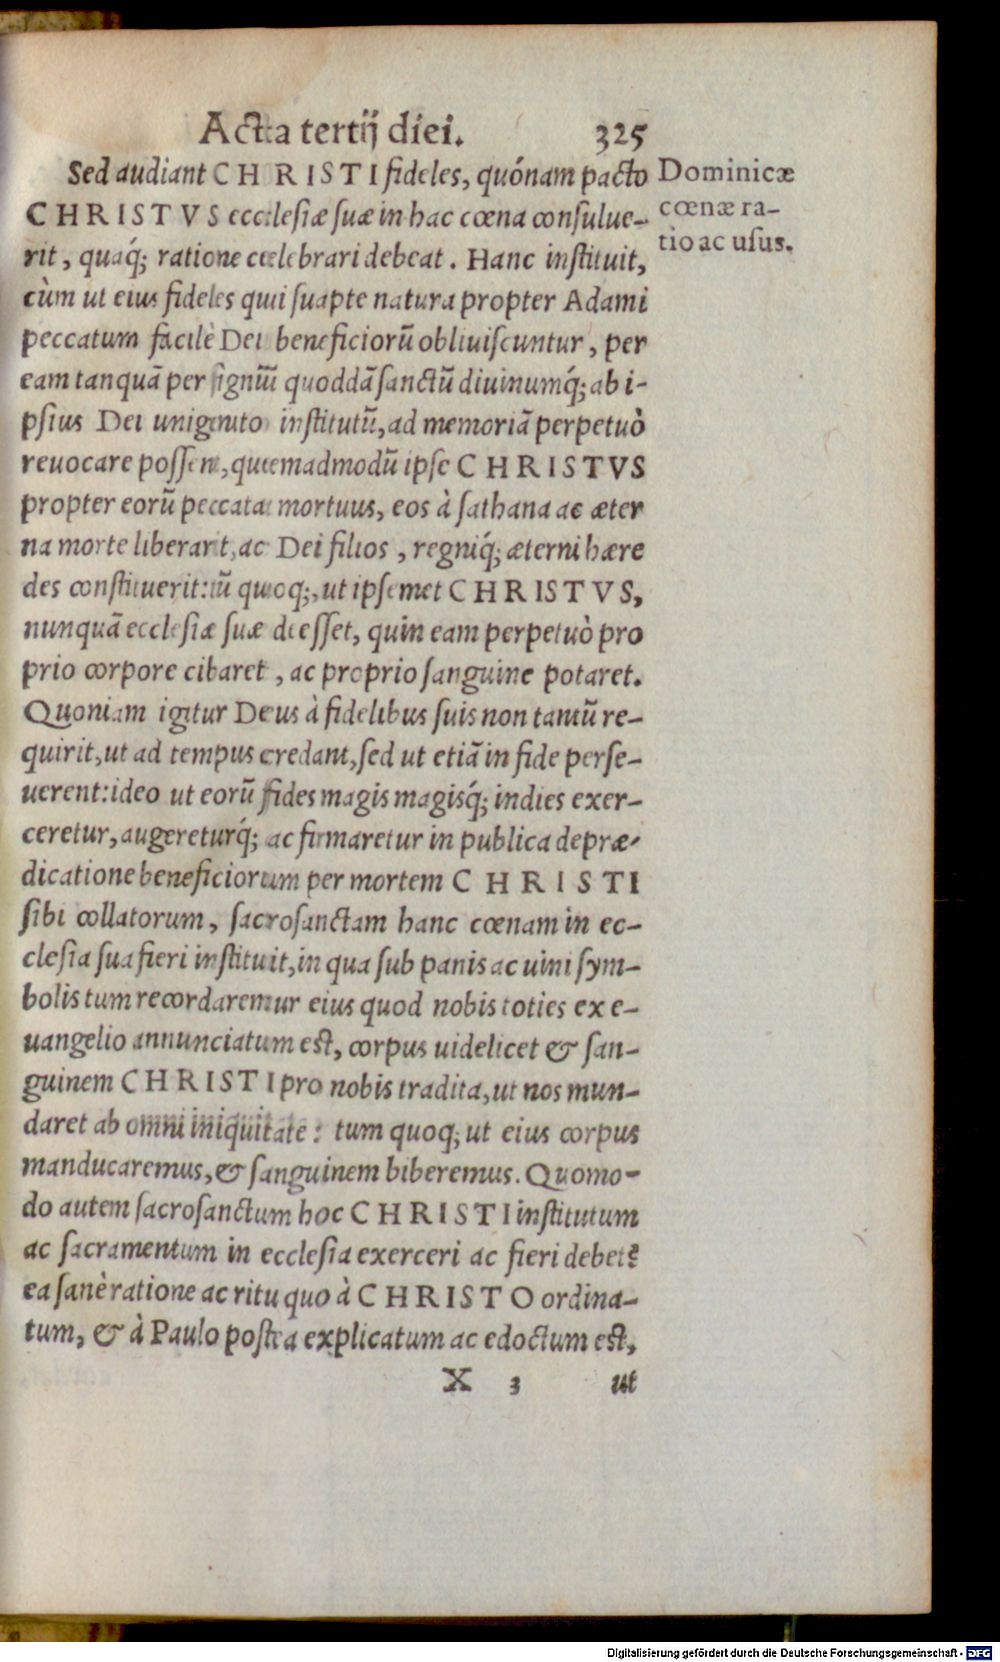 Acta tertij diei. 325
Sed audiant CHRISTI fideles, quónam pacto
CHRISTVS ecclesiæ suæ in hac cœna consulue-
rit, quaq́; ratione celebrari debeat. Hanc instituit,
cùm ut eius fideles qui suapte natura propter Adami
peccatum facilè Dei beneficiorū obliuiscuntur, per
eam tanquā per signū quoddā sanctū diuinumq́; ab i-
psius Dei unigenito institutū, ad memoriā perpetuò
reuocare possent, quemadmodū ipse CHRISTVS
propter eorū peccata mortuus, eos à sathana ac æter
na morte liberarit, ac Dei filios, regniq́; æterni hære
des constituerit: tū quoq;, ut ipsemet CHRISTVS,
nunquā ecclesiæ suæ deesset, quin eam perpetuò pro
prio corpore cibaret, ac proprio sanguine potaret.
Quoniam igitur Deus à fidelibus suis non tantū re-
quirit, ut ad tempus credant, sed ut etiā in fide perse-
uerent: ideo ut eorū fides magis magisq́; indies exer-
ceretur, augereturq́; ac firmaretur in publica depræ-
dicatione beneficiorum per mortem CHRISTI
sibi collatorum, sacrosanctam hanc cœnam in ec-
clesia sua fieri instituit, in qua sub panis ac uini sym-
bolis tum recordaremur eius quod nobis toties ex e-
uangelio annunciatum est, corpus uidelicet & san-
guinem CHRISTI pro nobis tradita, ut nos mun-
daret ab omni iniquitate: tum quoq; ut eius corpus
manducaremus, & sanguinem biberemus. Quomo-
do autem sacrosanctum hoc CHRISTI institutum
ac sacramentum in ecclesia exerceri ac fieri debet?
ea sanè ratione ac ritu quo à CHRISTO ordina-
tum, & à Paulo postea explicatum ac edoctum est,
X 3 ut
Dominicæ
cœnæ ra-
tio ac usus.
Digitalisierung gefördert durch die Deutsche Forschungsgemeinschaft - DFG